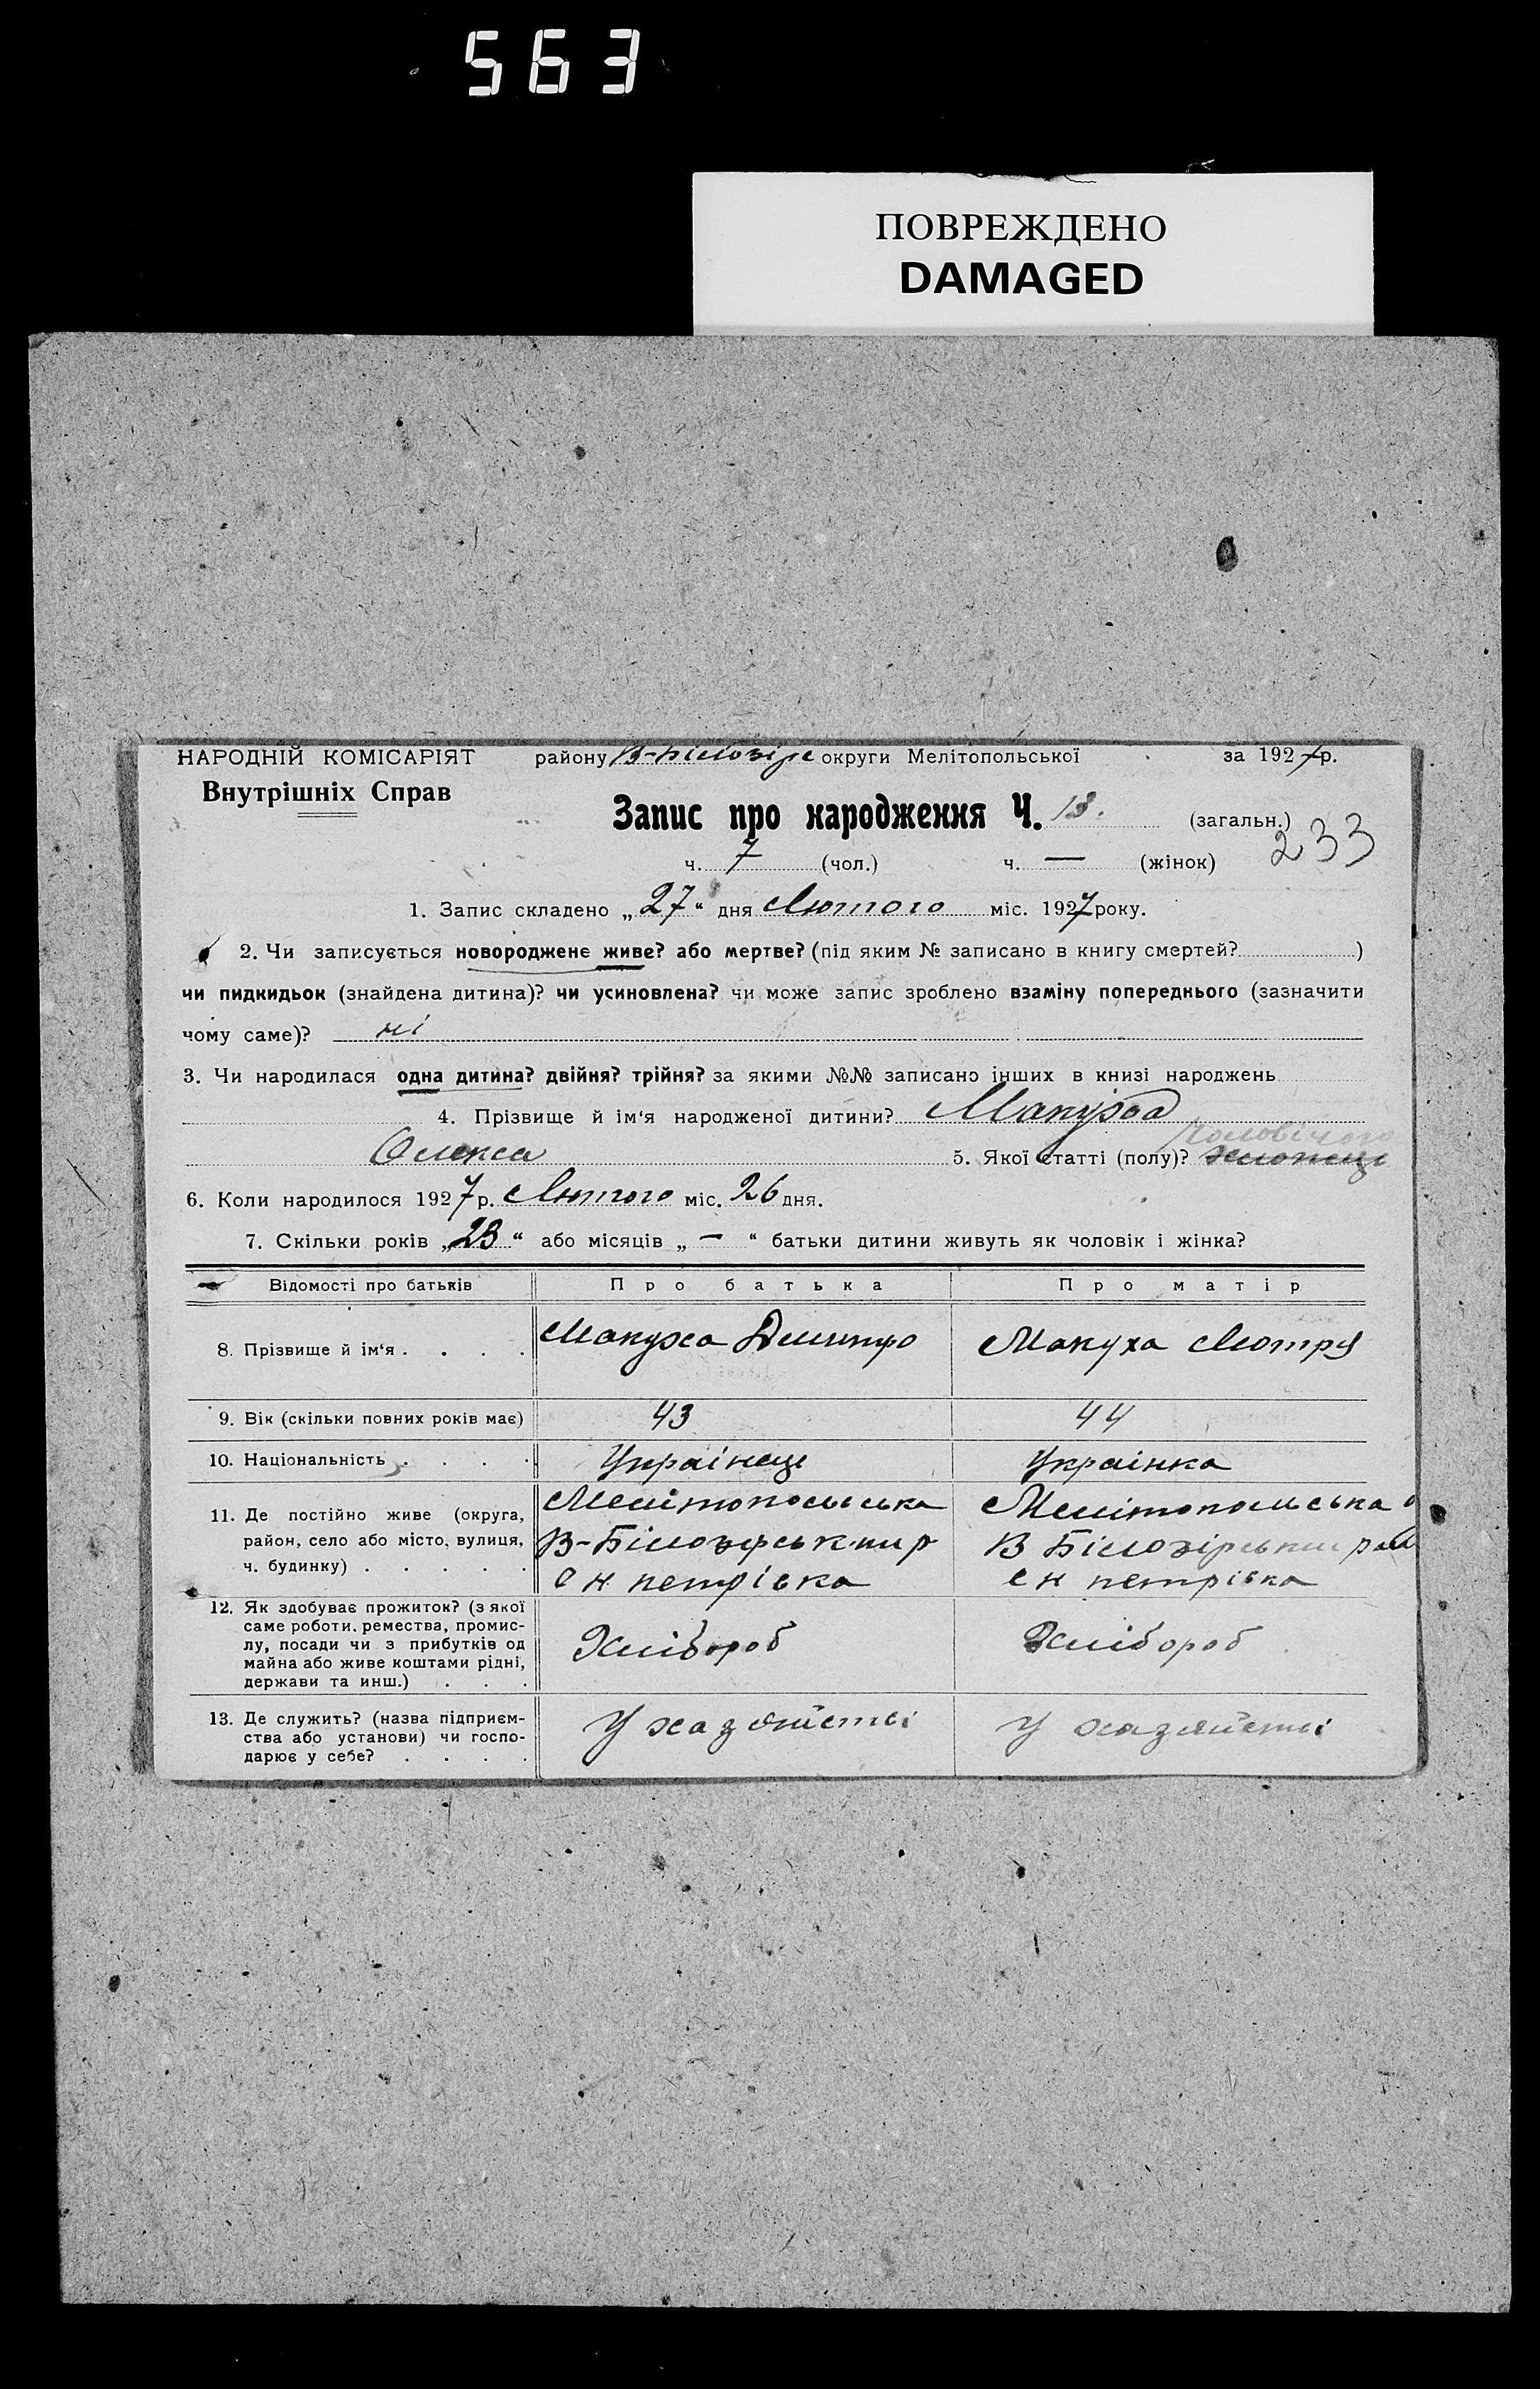 563
ПОВРЕЖДЕНО
DAMAGED
НАРОДНІЙ КОМІСАРІЯТ району В-Білозірс округи Мелітопольської за 1927 р.
Внутрішніх Справ
Запис про народження Ч. 13. (загальн.)
233
ч. 7 (чол.) ч. — (жінок)
1. Запис складено „27“ дня Лютого міс. 1927 року.
2. Чи записується новороджене живе? або мертве? (під яким № записано в книгу смертей? )
чи пидкидьок (знайдена дитина)? чи усиновлена? чи може запис зроблено взаміну попереднього (зазначити
чому саме)? ні
3. Чи народилася одна дитина? двійня? трійня? за якими №№ записано інших в книзі народжень
4. Прізвище й ім‘я народженої дитини? Макуха
чоловічого
Олекса 5. Якої статті (полу)? хлопець
6. Коли народилося 1927 р. Лютого міс. 26 дня.
7. Скільки років „23“ або місяців „—“ батьки дитини живуть як чоловік і жінка?
Відомості про батьків Про батька Про матір
8. Прізвище й ім‘я . . . . Макуха Дмитро Макуха Мотря
9. Вік (скільки повних років має) 43 44
10. Національність . . . . Українець Українка
11. Де постійно живе (округа, Мелітопольська Мелітопольська о
район, село або місто, вулиця, В-Білозірський р В Білозірський рай
ч. будинку) . . . . . с н петрівка с н петрівка
12. Як здобуває прожиток? (з якої
саме роботи, ремества, промис-
лу, посади чи з прибутків од Хлібороб Хлібороб
майна або живе коштами рідні,
держави та инш.) . . .
13. Де служить? (назва підприєм- У хазяйстві У хазяйстві
ства або установи) чи госпо-
дарює у себе? . . . .